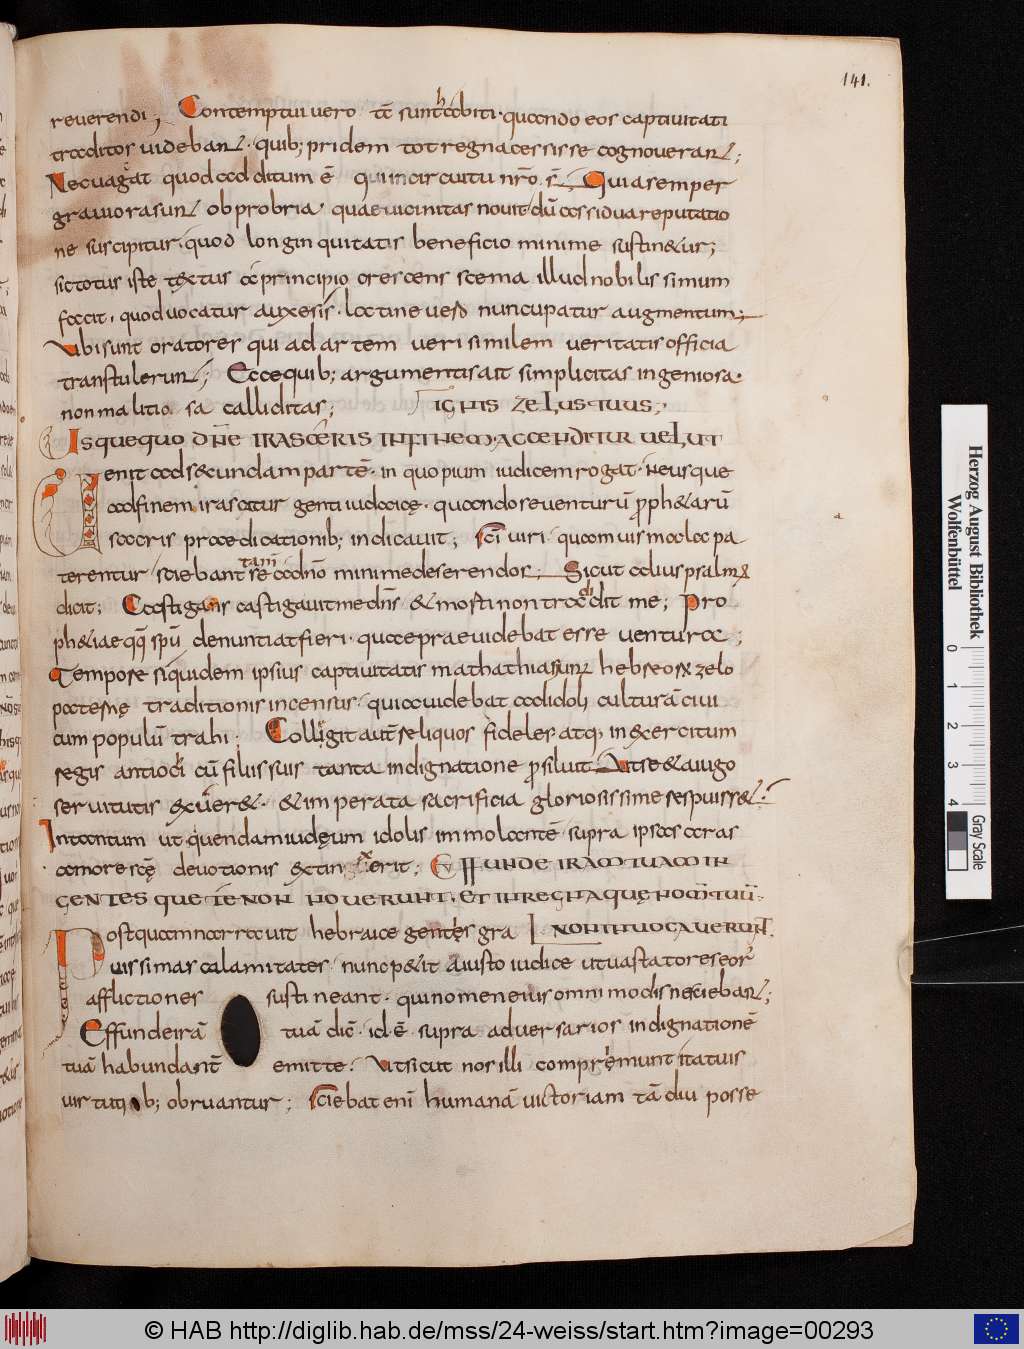 141.
reverendi, Contemptui vero tē sunt habiti · quando eos captivitati
traditos videbant · quib; pridem tot regna cessisse cognoverant;
Nec vacat quod additum ē qui in circuitu nr̄o s̄; Quia semper
graviora sunt obprobria · quae vicinitas novit · dū assidua reputatio
ne suscipitur · quod longinquitatis beneficio minime sustin&ur;
sic totus iste textus a principio crescens scema illud nobilissimum
facit · quod vocatur auxesis · latine vero nuncupatur augmentum;
Ubi sunt oratores qui ad artem verisimilem veritatis officia
transtulerunt; Ecce quib; argumentis ait simplicitas ingeniosa ·
non malitiosa calliditas; IGNIS ZELUS TUUS;
Usquequo DNE IRASCERIS IN FINEM · ACCENDITUR VELUT
Venit ad s&cundam partē · in quo pium iudicem rogat · ne usque
ad finem irascatur genti iudaicę · quando se venturū p̄ph&arū
sacris praedicationib; indicavit; Sc̄i viri · quamvis mala pa
terentur sciebant se tam̄ a dn̄o minime deserendos; Sicut alius psalm;
dicit; Castigans castigavit me dn̄s & morti non tradidit me; Pro
ph&iae qq sp̄u denuntiat fieri · quae praevidebat esse ventura;
Tempore siquidem ipsius captivitatis mathathias unus hebreorū zelo
paternę traditionis incensus · quia videbat ad idoli culturā civi
cum populū trahi · Colligit aut̄ reliquos fideles atq; in exercitum
regis antiochi cū filiis suis tanta indignatione p̄siluit · Ut se & aiugo
servitutis exuer& · & imperata sacrificia gloriosissime respuiss& ·
Intantum ut quendam iudęum idolis immolantē supra ipsas aras
amore scē devotionis extinxerit; EFFUNDE IRAM TUAM IN
GENTES QUE TE NON NOVERUNT · ET IN REGNA QUĘ NOM̄ TUŪ
Postquam narravit hebraice gentis gra NON INVOCAVERUNT.
vissimas calamitates · nunc p&it a iusto iudice ut vastatores eor̄
afflictiones sustineant · qui nomen eius omnimodis nesciebant;
Effunde irā tuā dic̄ · id ē supra adversarios indignationē
tuā habundant̄ emitte · Ut sicut nos illi compręmunt ita tuis
virtutib; obruantur; Sciebat enī humanā victoriam tā diu posse
Herzog August Bibliothek
Wolfenbüttel
0 1 2 3 4
Gray Scale
© HAB http://diglib.hab.de/mss/24-weiss/start.htm?image=00293